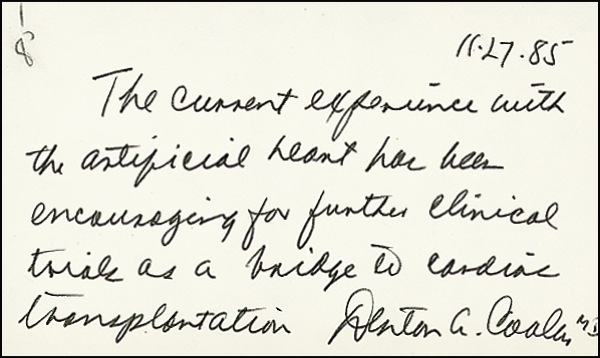 1
8
11.27.85
The current experience with
the artificial heart has been
encouraging for further clinical
trials as a bridge to cardiac
transplantation Denton A. Cooley MD